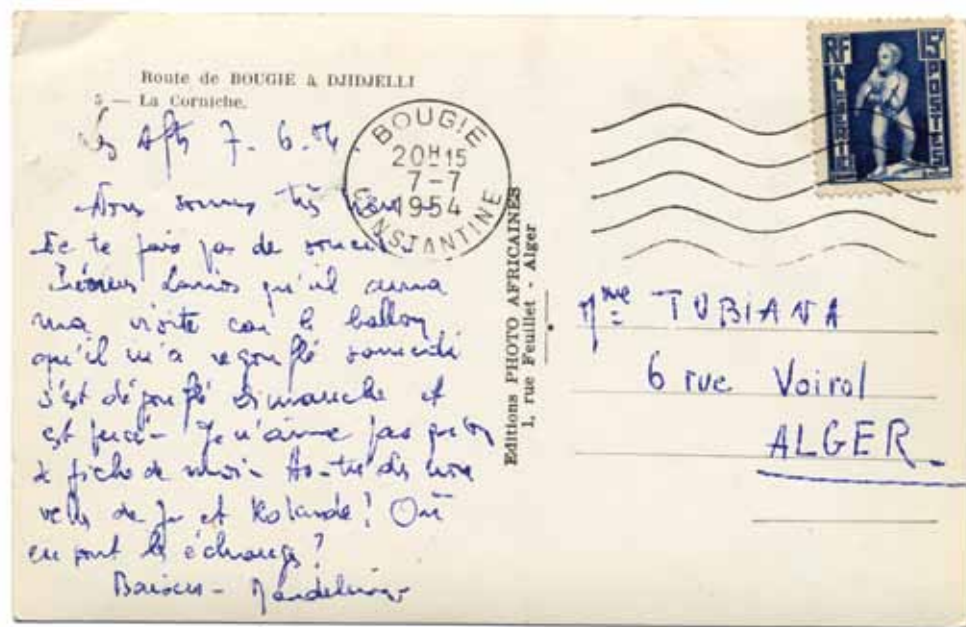 Route de BOUGIE à DJIDJELLI
5 — La Corniche.
7. 6. 54
Nous sommes très bien -
Ne te fais pas de souci.
Lanios qu'il aura
ma visite car le ballon
qu'il m'a regonflé samedi
s'est dégonflé dimanche et
est percé - Je n'aime pas qu'on
se fiche de moi - As-tu des nou
velles de et Rolande! Où
en sont les échanges?
Baisers -
BOUGIE
20H15
7-7
1954
CONSTANTINE
Editions PHOTO AFRICAINES
1, rue Feuillet - Alger
RF
ALGERIE
15F
POSTES
Mme TUBIANA
6 rue Voirol
ALGER